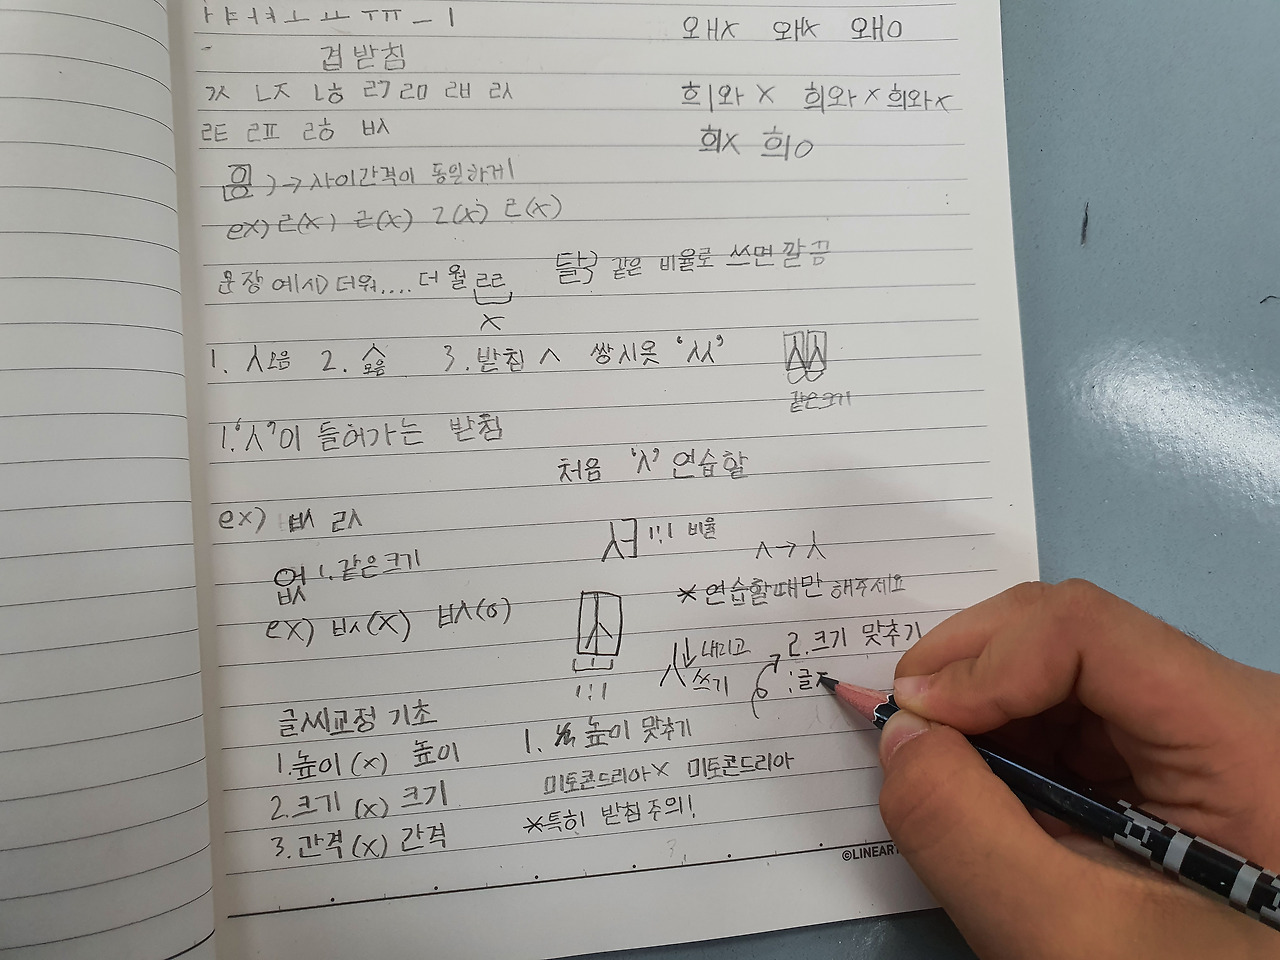 ㅏㅑㅓㅕㅗㅛㅜㅠㅡㅣ
왜x 왜x 왜o
겹받침
ㄳ ㄵ ㄶ ㄺ ㄻ ㄼ ㄽ
희와 x 희와 x 희와 x
ㄾ ㄿ ㅀ ㅄ
희x 희o
몸 ) → 사이간격이 동일하게
ex) ㄹ(x) ㄹ(x) ㄹ(x) ㄹ(x)
문장에서) 더워.... 더 월ㄹㄹ
x
닭) 같은 비율로 쓰면 깔끔
1. ㅅ모음 2. ㅅ모음 3. 받침 ㅅ 쌍시옷 'ㅆ'
같은크기
1. 'ㅅ'이 들어가는 받침
처음 'ㅅ' 연습할
ex) ㅄ ㄽ
서 1:1 비율
ㅅ → ㅅ
없 1. 같은크기
*연습할때만 해주세요
ex) ㅄ(x) ㅄ(o)
1:1
ㅅ ↓ 내리고
쓰기
2. 크기 맞추기
: 글ㅈ
글씨교정 기초
1. 높이 (x) 높이
2. 크기 (x) 크기
3. 간격 (x) 간격
1. 높이 맞추기
미토콘드리아x 미토콘드리아
*특히 받침주의!
3.
©LINEART